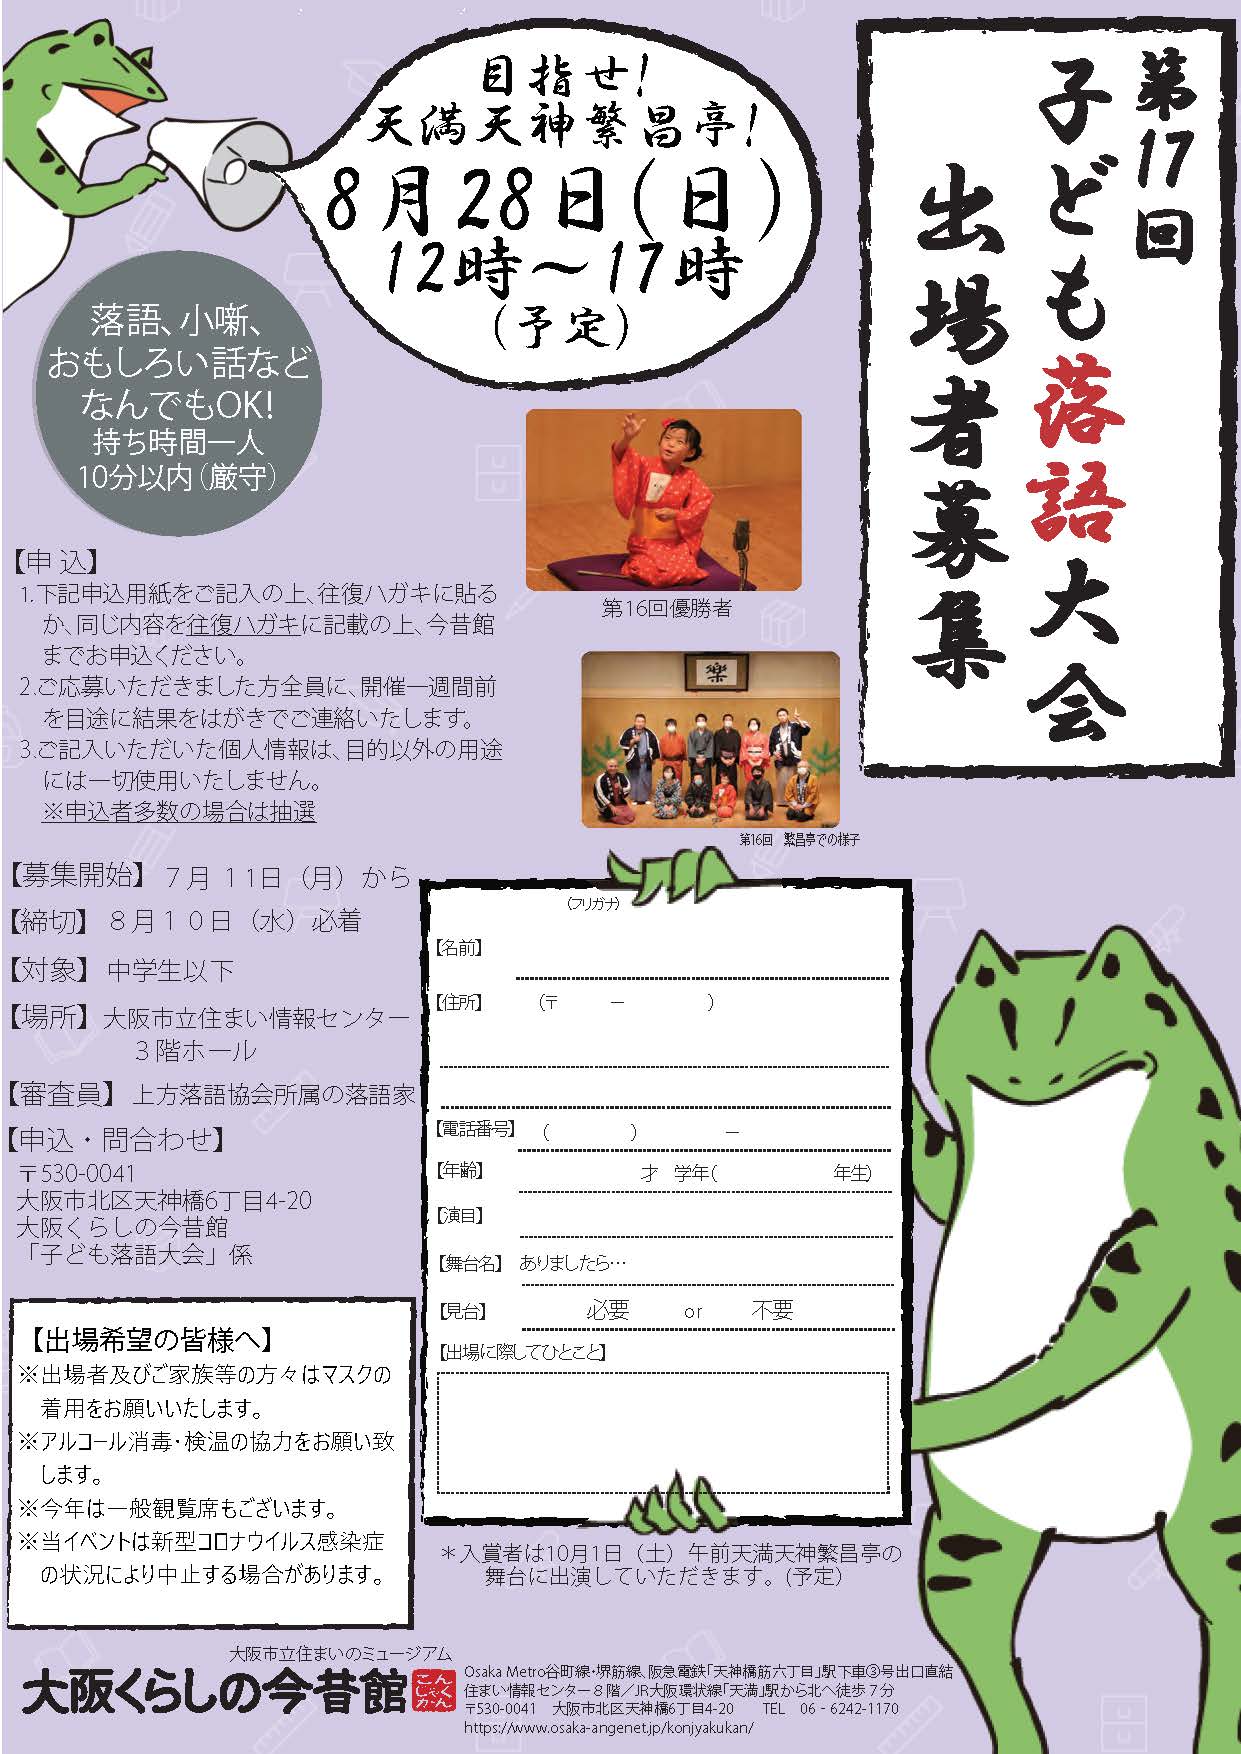 第17回
子ども落語大会
出場者募集
目指せ!
天満天神繁昌亭!
8月28日(日)
12時～17時
(予定)
落語、小噺、
おもしろい話など
なんでもOK!
持ち時間一人
10分以内(厳守)
第16回優勝者
楽
第16回　繁昌亭での様子
【申 込】
1.下記申込用紙をご記入の上、往復ハガキに貼る
か、同じ内容を往復ハガキに記載の上、今昔館
までお申込ください。
2.ご応募いただきました方全員に、開催一週間前
を目途に結果をはがきでご連絡いたします。
3.ご記入いただいた個人情報は、目的以外の用途
には一切使用いたしません。
※申込者多数の場合は抽選
【募集開始】 ７月 １１日 （月）から
【締切】 ８月１０日（水）必着
【対象】 中学生以下
【場所】 大阪市立住まい情報センター
３階ホール
【審査員】 上方落語協会所属の落語家
【申込・問合わせ】
〒530-0041
大阪市北区天神橋6丁目4-20
大阪くらしの今昔館
「子ども落語大会」係
【出場希望の皆様へ】
※出場者及びご家族等の方々はマスクの
着用をお願いいたします。
※アルコール消毒・検温の協力をお願い致
します。
※今年は一般観覧席もございます。
※当イベントは新型コロナウイルス感染症
の状況により中止する場合があります。
(フリガナ)
【名前】
【住所】 (〒 － )
【電話番号】 ( ) －
【年齢】 才 学年( 年生)
【演目】
【舞台名】 ありましたら…
【見台】 必要 or 不要
【出場に際してひとこと】
＊入賞者は10月1日（土）午前天満天神繁昌亭の
舞台に出演していただきます。(予定)
大阪市立住まいのミュージアム
大阪くらしの今昔館
こんじゃくカン
Osaka Metro谷町線・堺筋線、阪急電鉄「天神橋筋六丁目」駅下車③号出口直結
住まい情報センター８階／JR大阪環状線「天満」駅から北へ徒歩７分
〒530-0041　大阪市北区天神橋6丁目4-20　TEL　06‐6242-1170
https://www.osaka-angenet.jp/konjyakukan/